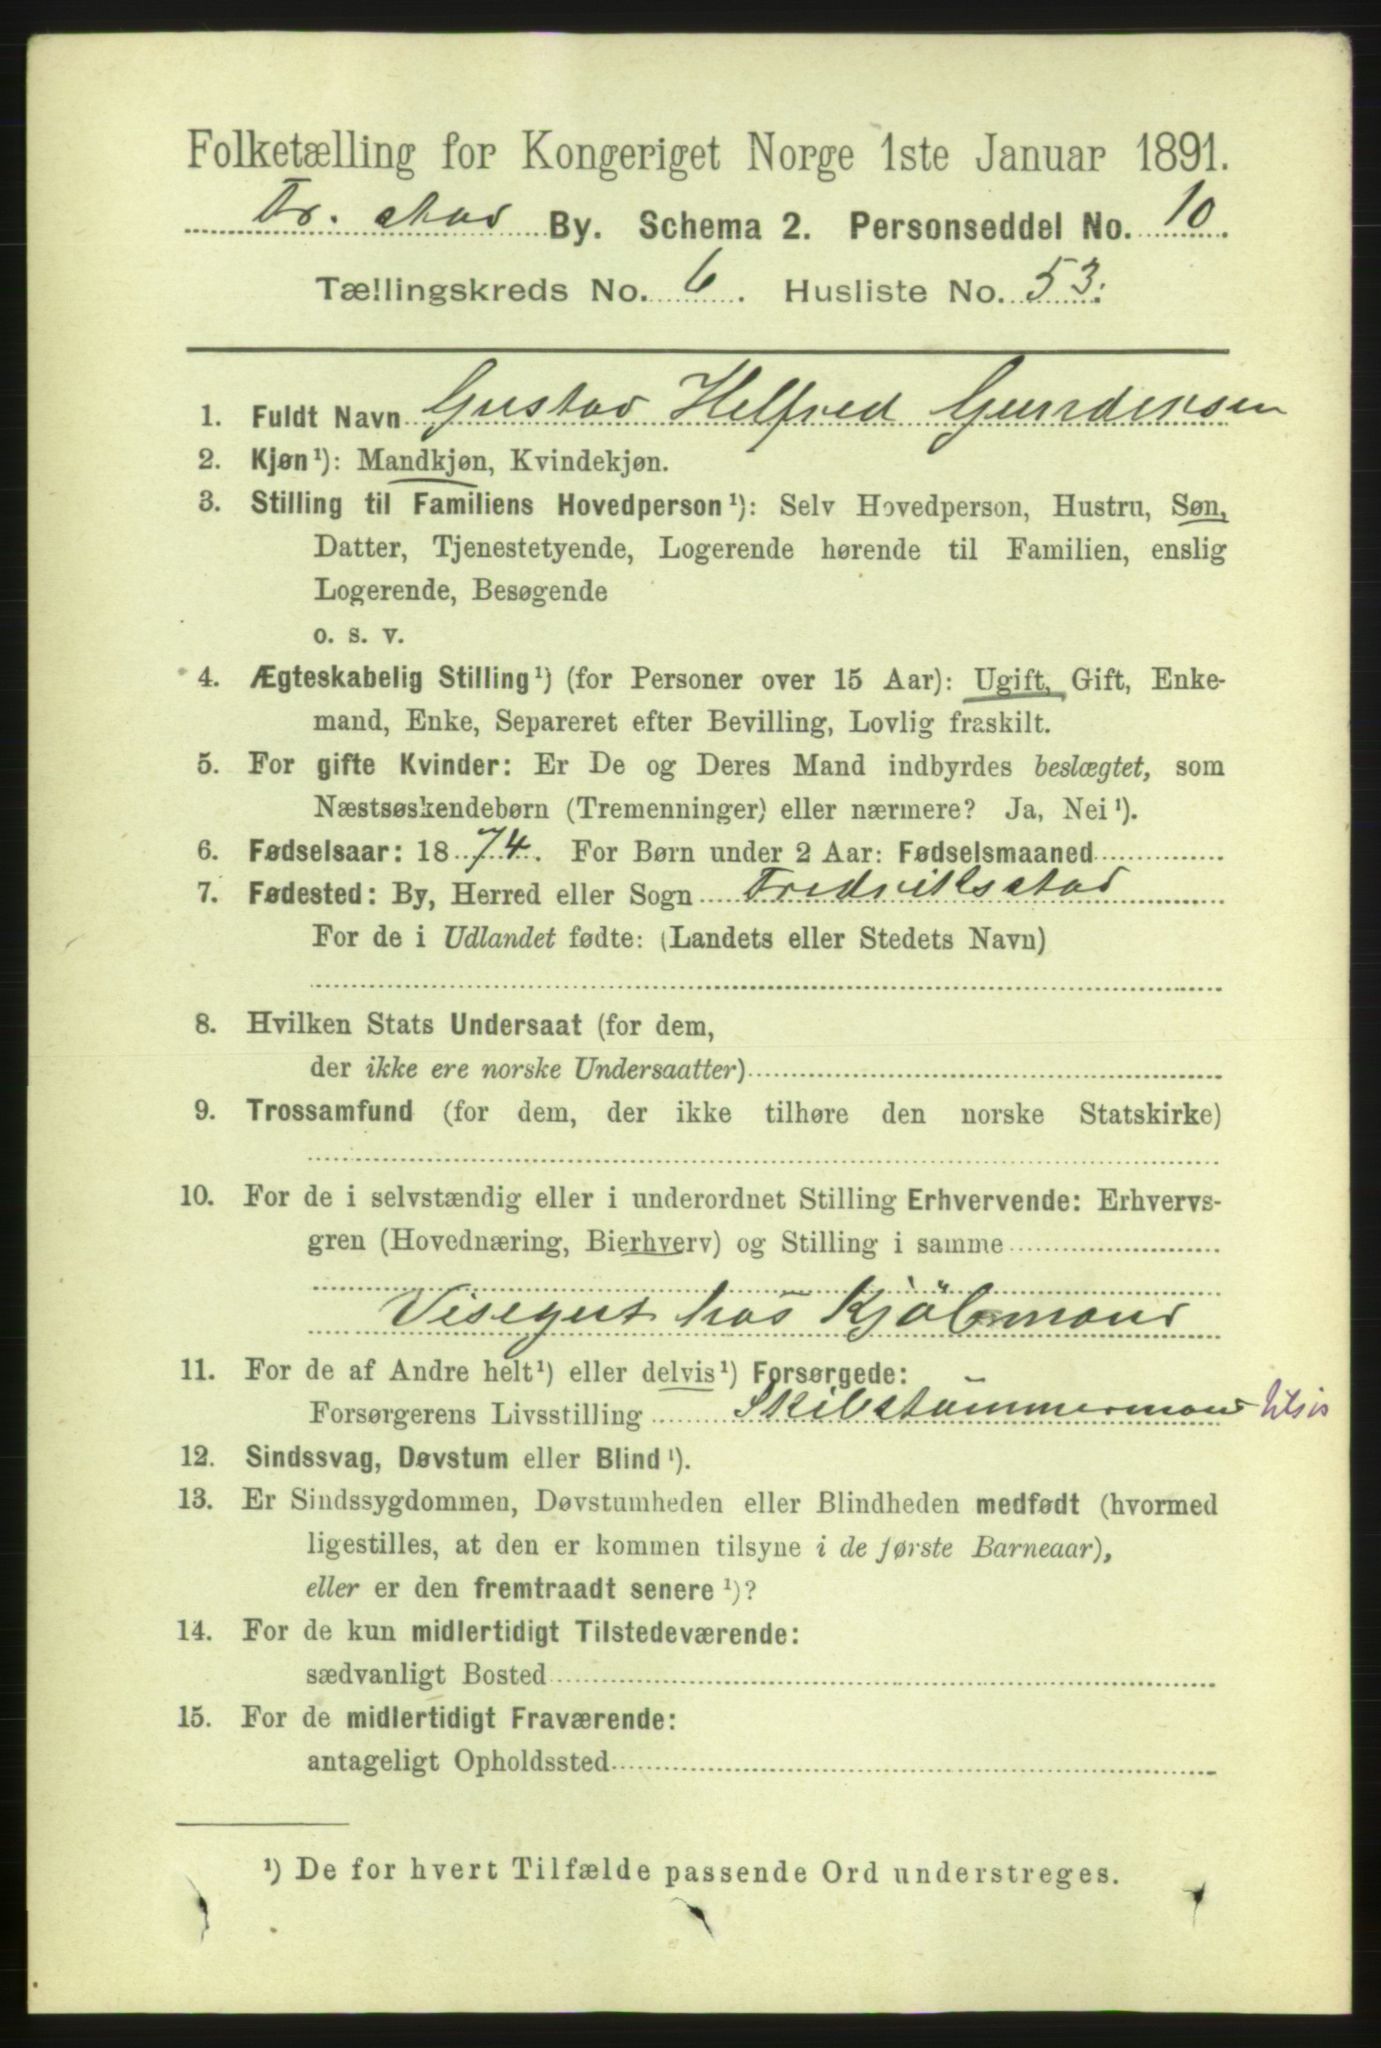 Folketælling for Kongeriget Norge 1ste Januar 1891.
Fr. stad By. Schema 2. Personseddel No. 10.
Tællingskreds No. 6. Husliste No. 53.
1. Fuldt Navn Gustav Helfred Gundersen
2. Kjøn¹): Mandkjøn, Kvindekjøn.
3. Stilling til Familiens Hovedperson¹): Selv Hovedperson, Hustru, Søn,
Datter, Tjenestetyende, Logerende hørende til Familien, enslig
Logerende, Besøgende
o. s. v.
4. Ægteskabelig Stilling¹) (for Personer over 15 Aar): Ugift, Gift, Enke-
mand, Enke, Separeret efter Bevilling, Lovlig fraskilt.
5. For gifte Kvinder: Er De og Deres Mand indbyrdes beslægtet, som
Næstsøskendebørn (Tremenninger) eller nærmere? Ja, Nei¹).
6. Fødselsaar: 1874. For Børn under 2 Aar: Fødselsmaaned
7. Fødested: By, Herred eller Sogn Fredrikstad
For de i Udlandet fødte: (Landets eller Stedets Navn)
8. Hvilken Stats Undersaat (for dem,
der ikke ere norske Undersaatter)
9. Trossamfund (for dem, der ikke tilhøre den norske Statskirke)
10. For de i selvstændig eller i underordnet Stilling Erhvervende: Erhvervs-
gren (Hovednæring, Bierhverv) og Stilling i samme
Visegut hos Kjöbmand
11. For de af Andre helt¹) eller delvis¹) Forsørgede:
Forsørgerens Livsstilling Skibstømmermand
12. Sindssvag, Døvstum eller Blind¹).
13. Er Sindssygdommen, Døvstumheden eller Blindheden medfødt (hvormed
ligestilles, at den er kommen tilsyne i de første Barneaar),
eller er den fremtraadt senere¹)?
14. For de kun midlertidigt Tilstedeværende:
sædvanligt Bosted
15. For de midlertidigt Fraværende:
antageligt Opholdssted
¹) De for hvert Tilfælde passende Ord understreges.